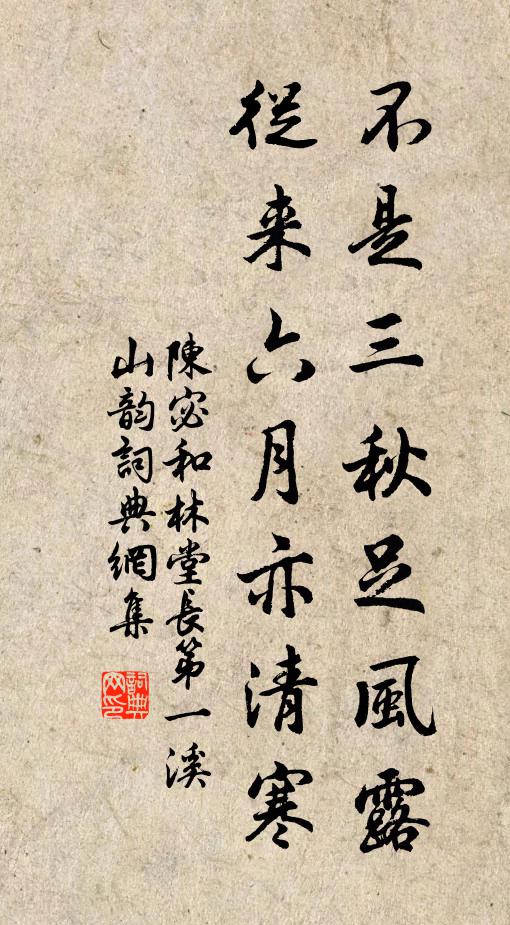 不是三秋足風露
從来六月亦清寒
陳宓和林堂長第一溪
山韵詞典網集
詞典网印